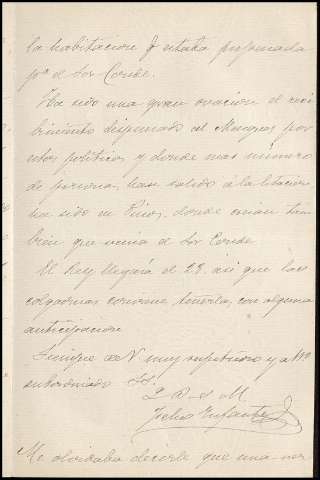 la habitacion q estaba preparada
pª el Sor Conde.
Ha sido una gran ovacion el reci
bimiento dispensado al Marques por
estos politicos y donde mas número
de personas han salido á la estacion
ha sido en Pinos, donde creian tam
bien que venia el Sor Conde
El Rey llegaría el 28. asi que las
colgaduras conviene tenerlas con alguna
anticipacion
Siempre de V. muy respetuoso y aftº
subordinado SS.
Q B S M
Infante
Me olvidaba decirle que una vez